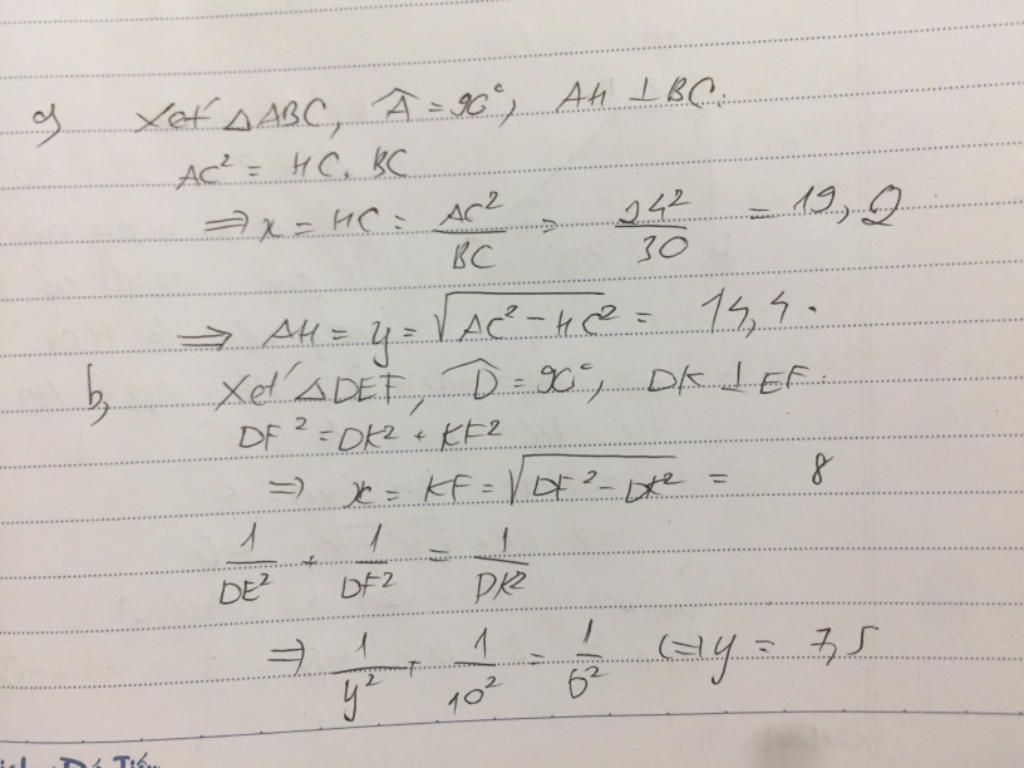 a) Xét △ABC, Â = 90°, AH ⊥ BC.
AC² = HC. BC
⇒ x = HC = AC²/BC = 24²/30 = 19,2
⇒ AH = y = √(AC² - HC²) = 14,4.
b, Xét △DEF, D̂ = 90°, DK ⊥ EF.
DF² = DK² + KF²
⇒ x = KF = √(DF² - DK²) = 8
1/DE² + 1/DF² = 1/DK²
⇒ 1/y² + 1/10² = 1/6² (=) y = 7,5